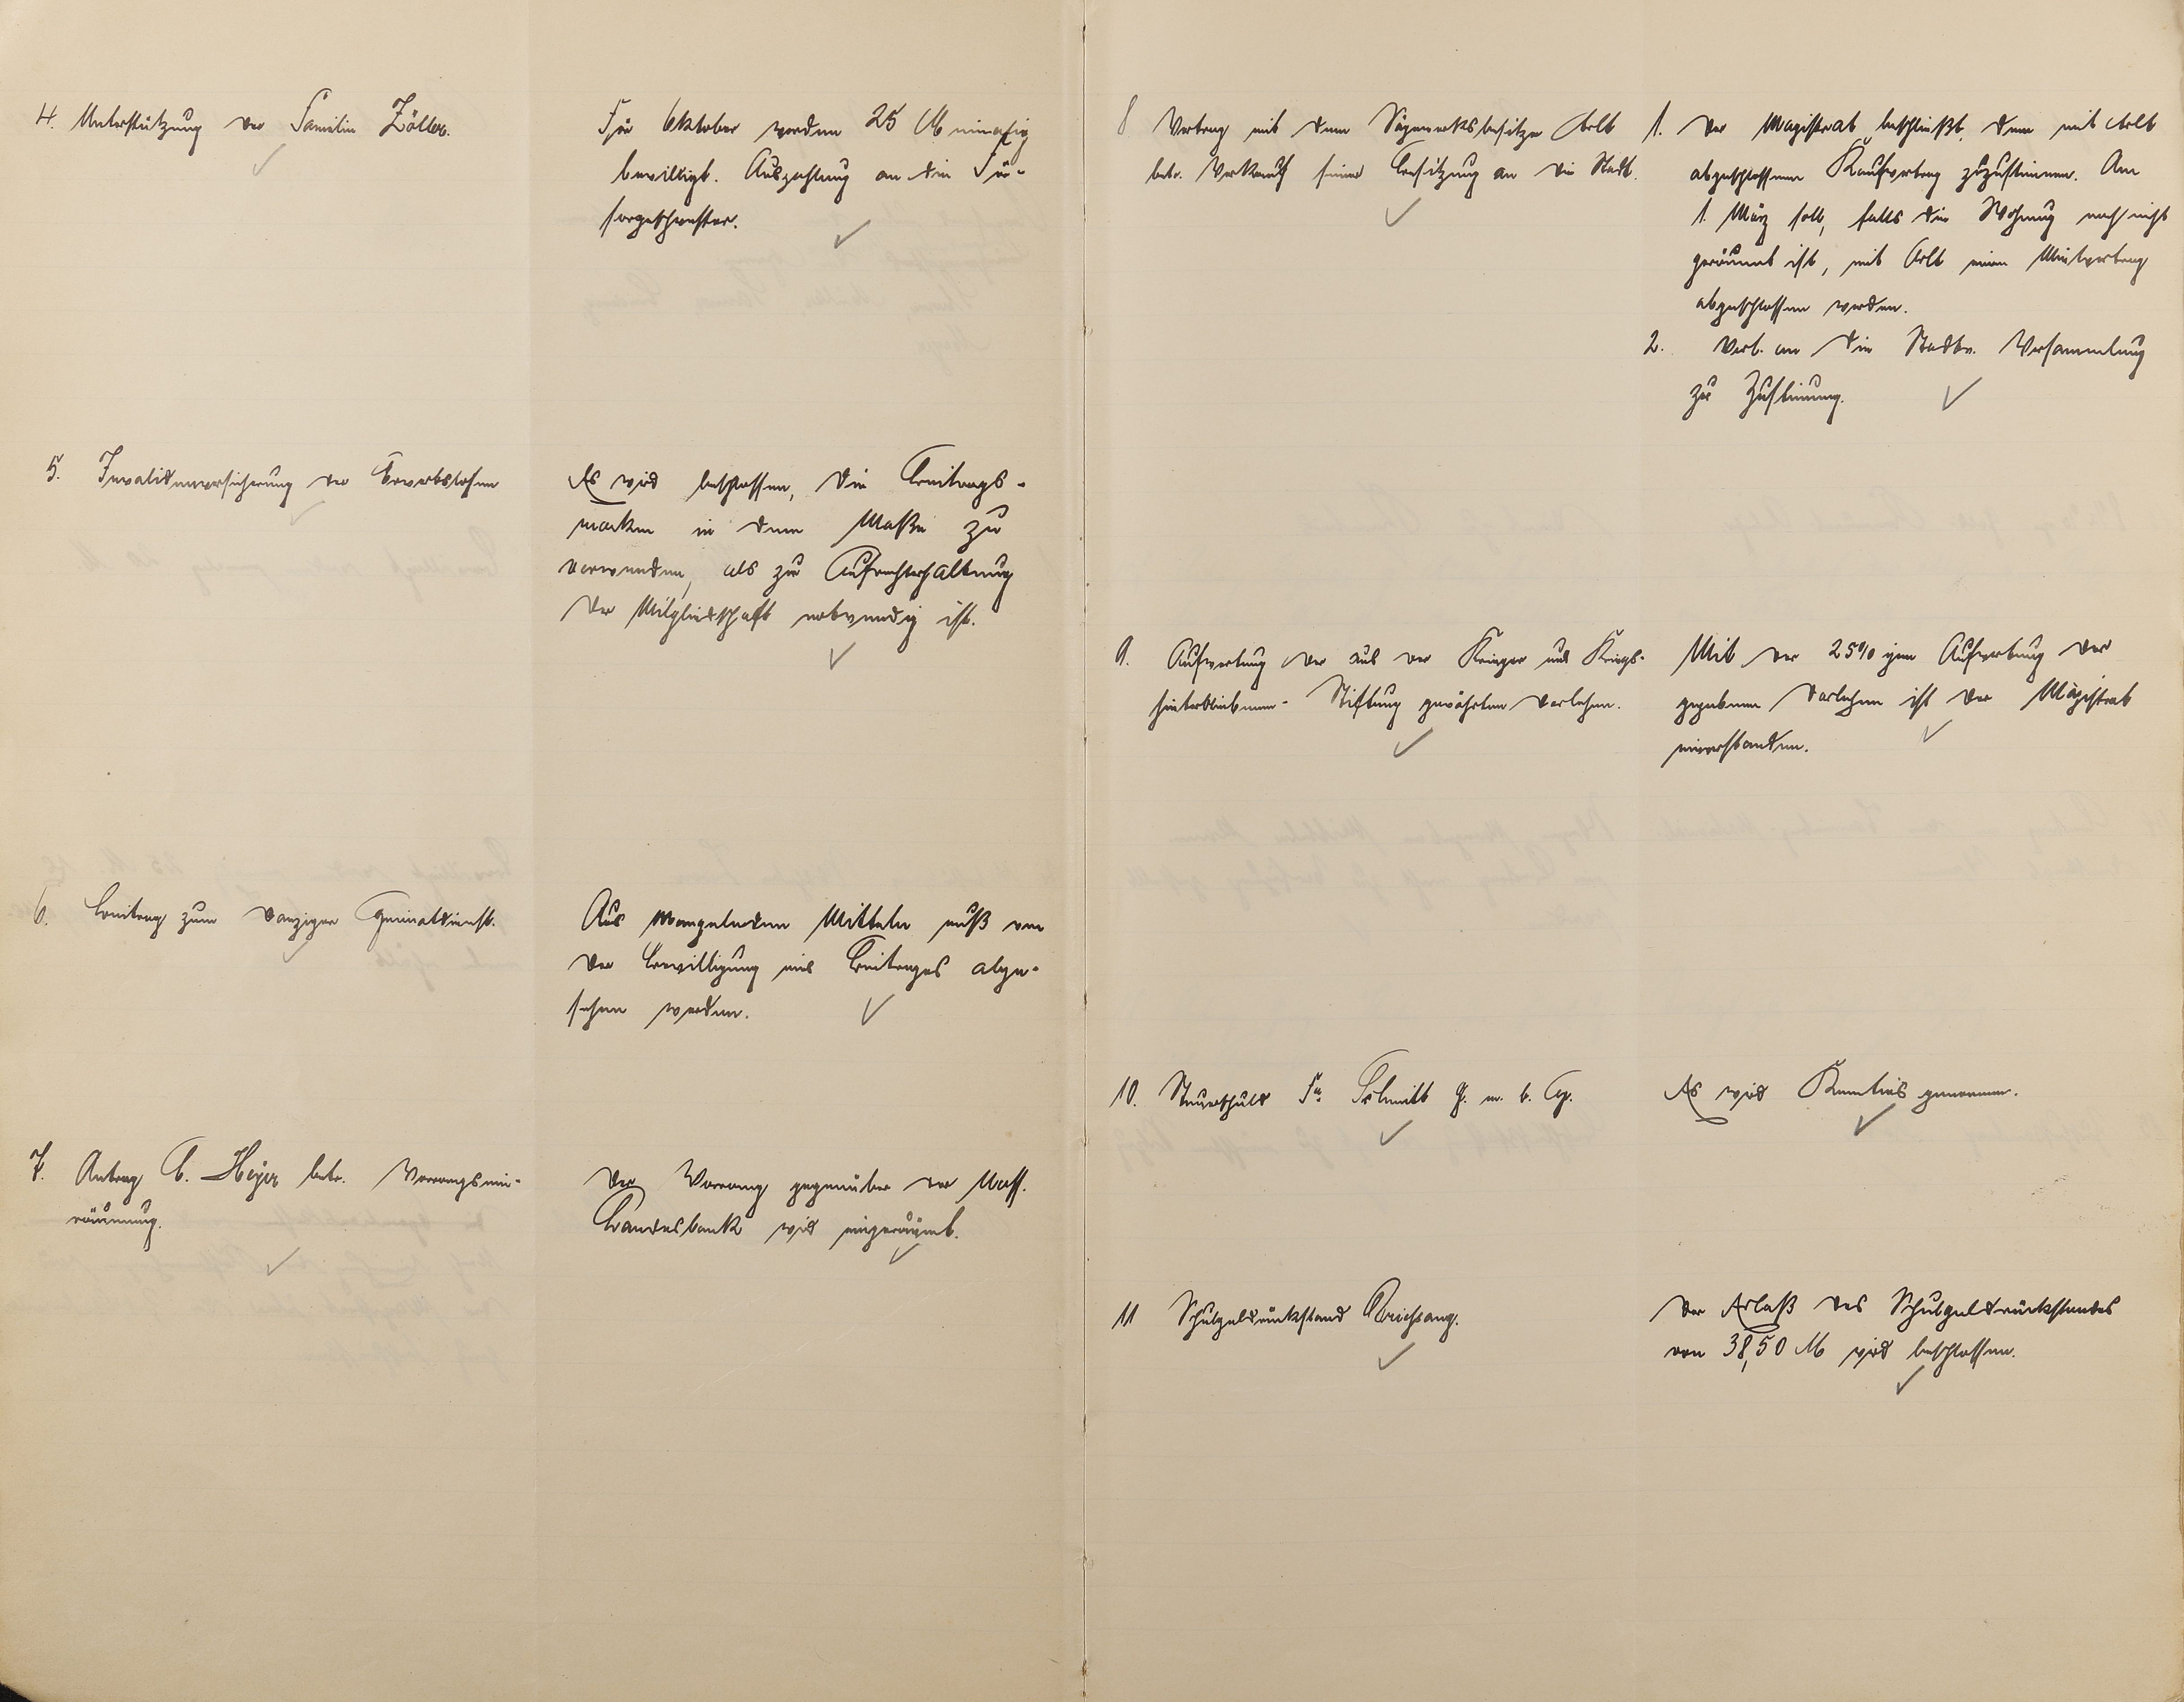 4. Unterstützung der Familie Zöller.
Für Oktober werden 25 M einmalig
bewilligt. Auszahlung an die Für-
sorgeschwester.
5. Invalidenversicherung der Erwerbslosen
Es wird beschlossen, die Beitrags-
marken in dem Maße zu
verwenden, als zur Aufrechterhaltung
der Mitgliedschaft notwendig ist.
6. Beitrag zum Danziger Heimatdienst.
Aus mangelnden Mitteln muß von
der Bewilligung eines Beitrages abge-
sehen werden.
7. Antrag C. Heyer betr. Vorrangsein-
räumung.
Der Vorrang gegenüber der Nass.
Landesbank wird eingeräumt.
8 Vertrag mit dem Sägewerksbesitzer Arlt
betr. Verkauf seiner Besitzung an die Stadt.
1. Der Magistrat beschließt, dem mit Arlt
abgeschlossenen Kaufvertrag zuzustimmen. Am
1. März soll, falls die Wohnung noch nicht
geräumt ist, mit Arlt einen Mietvertrag
abgeschlossen werden.
2. Vorl. an die Stadtv. Versammlung
zur Zustimmung.
9. Aufwertung der aus der Krieger und Kriegs-
hinterbliebenen- Stiftung gewährten Darlehen.
Mit der 25% igen Aufwertung der
gegebenen Darlehen ist der Magistrat
einverstanden.
10. Steuerschuld Fa. Schmitt G. m. b. H.
Es wird Kenntnis genommen.
11 Schulgeldrückstand
Der Erlaß des Schulgeldrückstandes
von 38,50 M wird beschlossen.